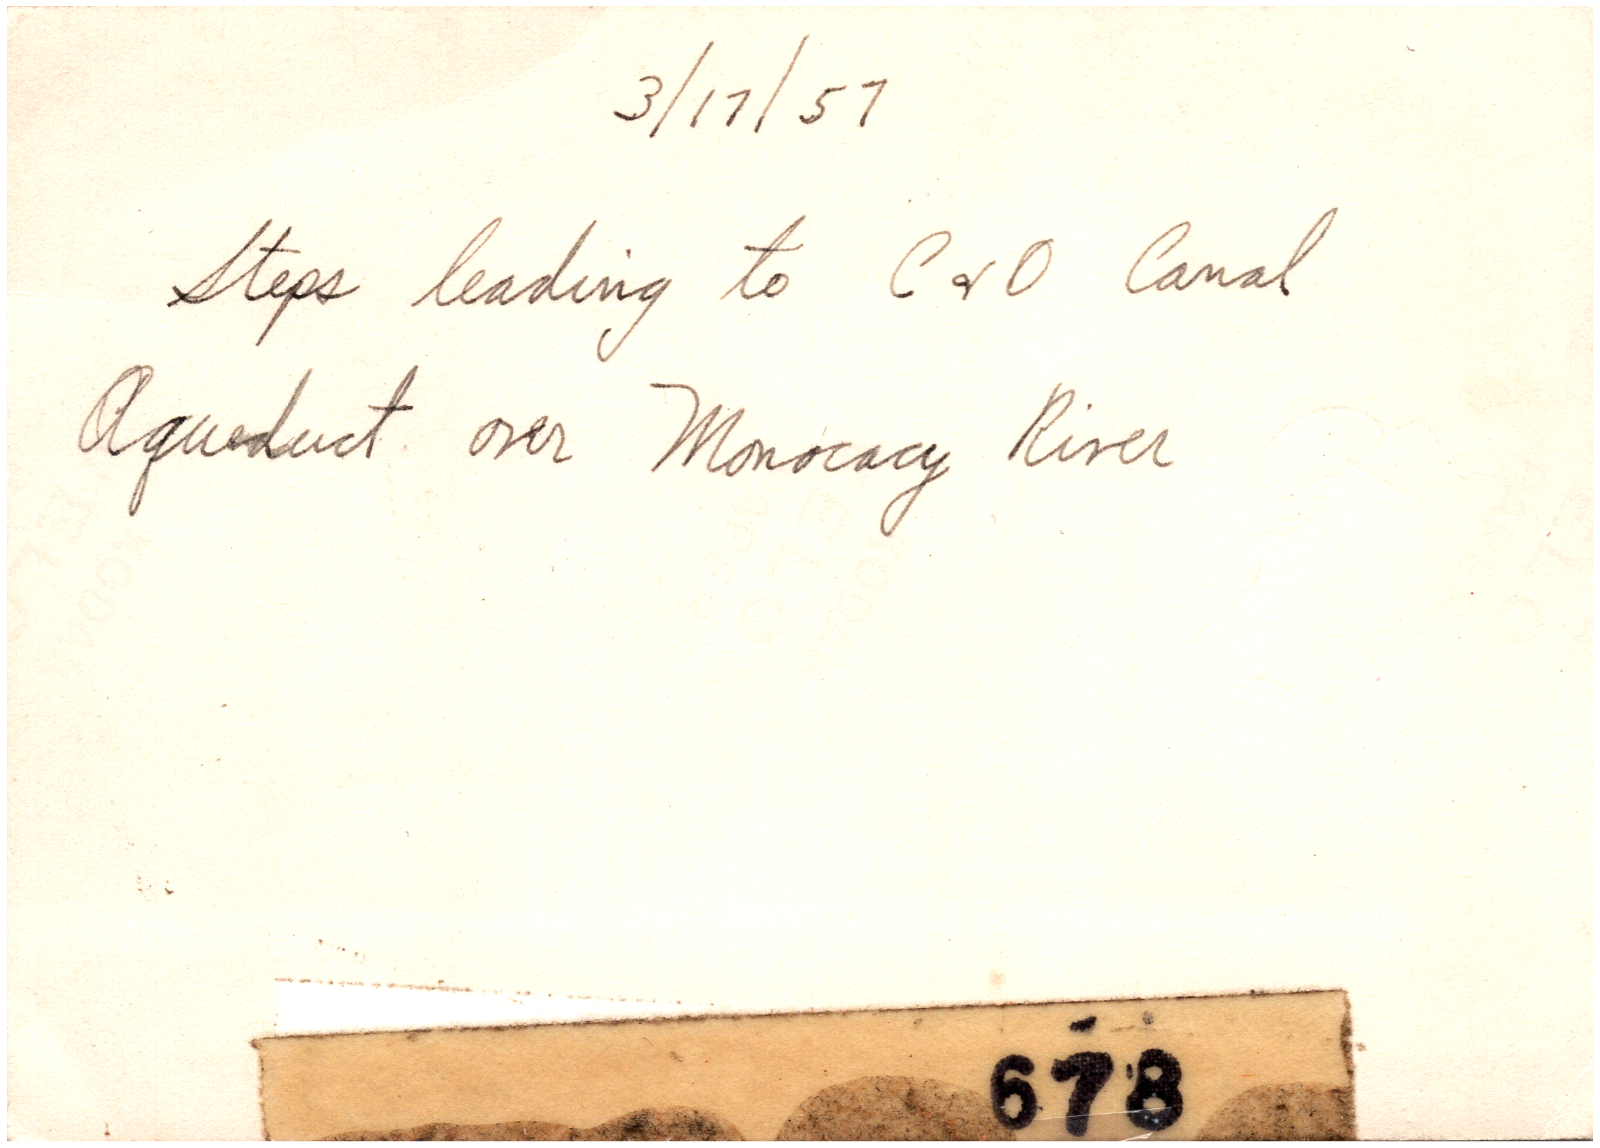 3/17/57
Steps leading to C & O Canal
Aqueduct over Monocacy River
678